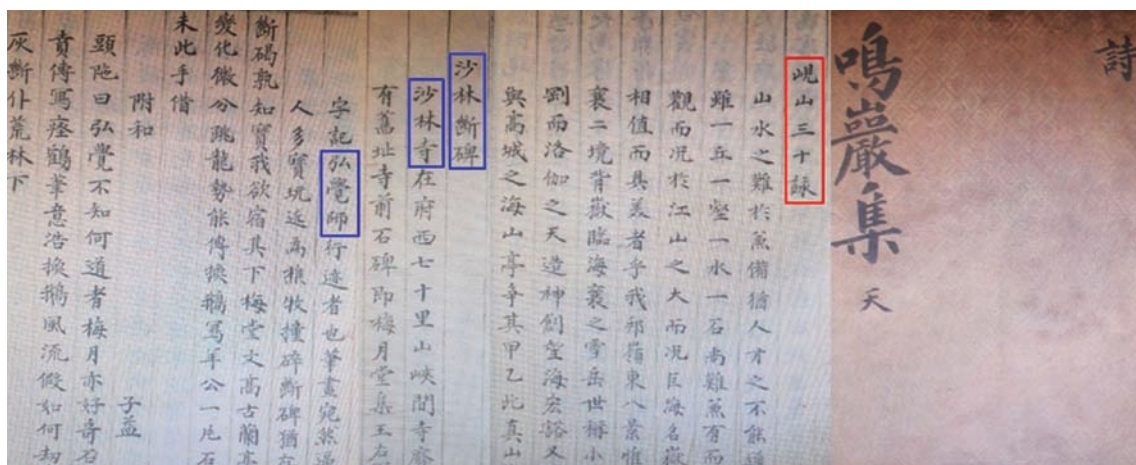 詩
鳴巖集 天
峴山三十詠
山水之難於兼備猶人才之不能
雖一丘一壑一水一石尚難兼有而
觀而况於江山之大而况巨海名嶽
相值而具美者乎我邦嶺東八景惟
襄二境背嶽臨海襄之雪岳世稱小
劉而洛伽之天造神創望海宏豁又
與高城之海山亭爭其甲乙此真山
沙林斷碑
沙林寺在府西七十里山峽間寺廢
有舊址寺前石碑即梅月堂集王右
字記弘覺師行迹者也筆畫宛然
人多寶玩近為樵牧撞碎斷碑猶在
斷碣孰知寶我欲宿其下梅堂文高古蘭亭
變化微分跳龍勢能傳換鵝寫年公一片石
未此手借
附和 子益
頭陁曰弘覺不知何道者梅月亦好奇石
賁傳寫瘞鶴筆意浩換鵝風流儼如何刼
灰斷仆荒林下